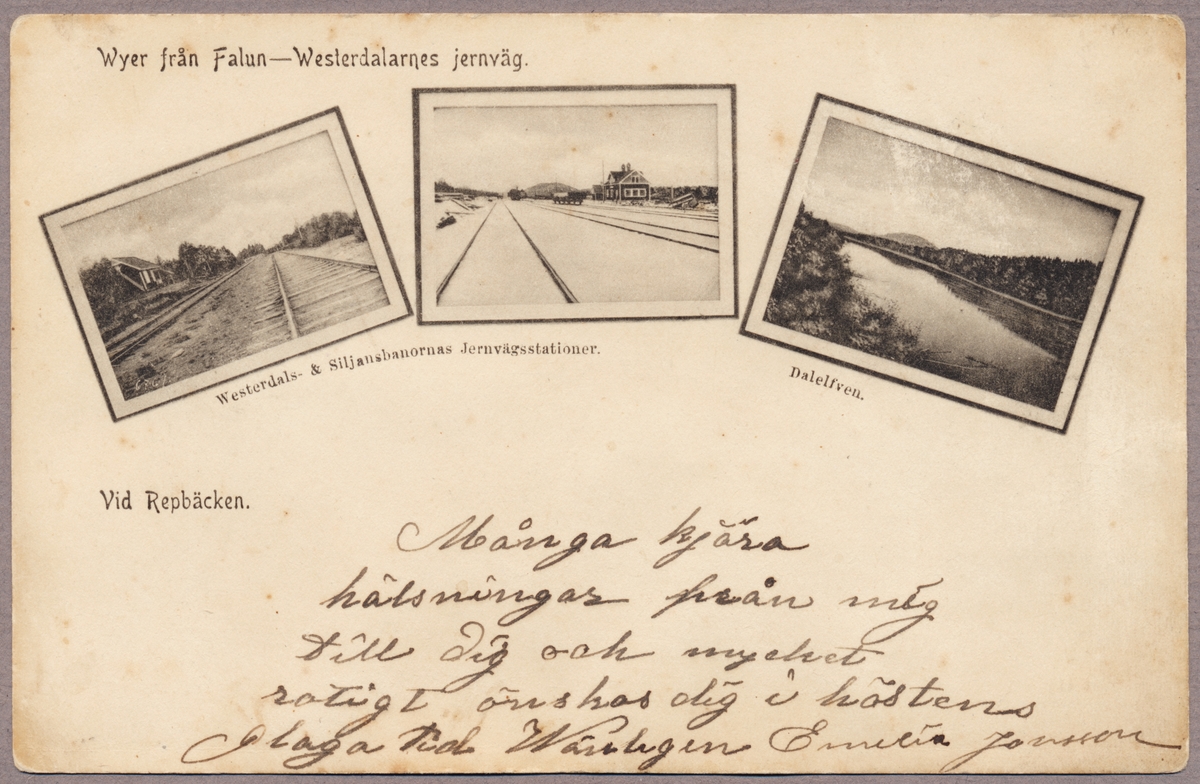 Wyer från Falun—Westerdalarnes jernväg.
Westerdals- & Siljansbanornas Jernvägsstationer.
Dalelfven.
Vid Repbäcken.
Många kjära
hälsningar från mig
till dig och mycket
rotigt önskas dig i höstens
glaga tid Wänligen Emelia Jonsson